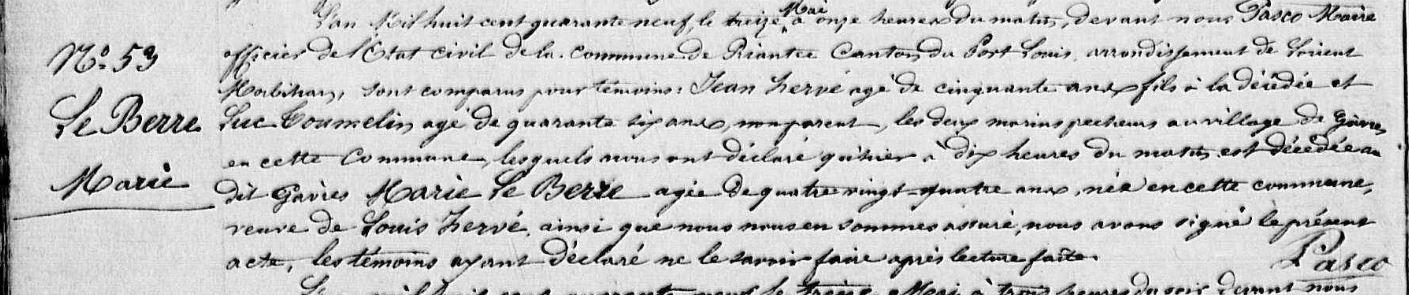 L'an Mil huit cent quarante neuf, le treize Mai à onze heures du matin, devant nous Pasco Maire
N° 53
officier de l'Etat civil de la commune de Riantec Canton du Port Louis, arrondissement de Lorient
Morbihan, sont comparus pour témoins: Jean Hervé agé de cinquante ans, fils à la décédée et
Le Berre
Luc Toumelin, agé de quarante six ans, non parent, les deux marins pecheurs au village de Gâvres
en cette Commune, lesquels nous ont déclaré qu'hier à dix heures du matin est décédée au
Marie
dit Gavres Marie Le Berre agée de quatre vingt-quatre ans, née en cette commune,
veuve de Louis Hervé, ainsi que nous nous en sommes assuré, nous avons signé le présent
acte, les témoins ayant déclaré ne le savoir faire après lecture faite.
Pasco
L'an mil huit cent quarante neuf le treize Mai à trois heures du soir devant nous